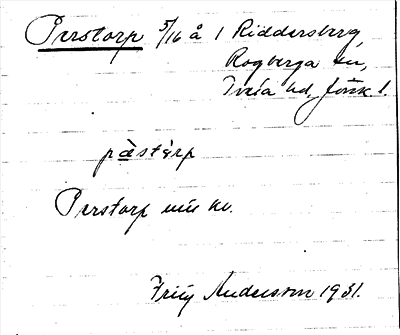 Perstorp 5/16 å 1 Riddersberg,
Rogberga sn,
Tveta hd, Jönk l.
pæ̀stérp
Perstorp mtl kv.
Fritz Andersson 1931.